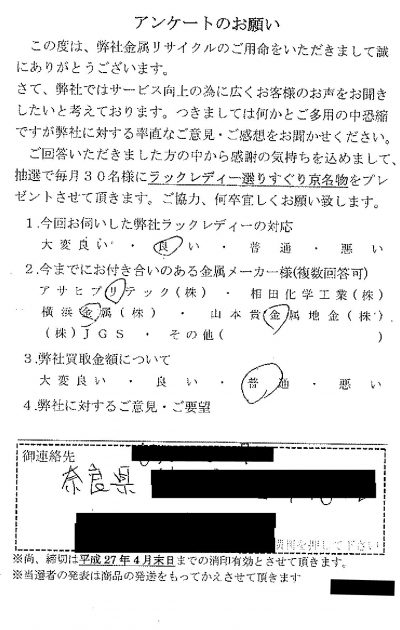 アンケートのお願い
この度は、弊社金属リサイクルのご用命をいただきまして誠
にありがとうございます。
さて、弊社ではサービス向上の為に広くお客様のお声をお聞き
したいと考えております。つきましては何かとご多用の中恐縮
ですが弊社に対する率直なご意見・ご感想をお聞かせください。
ご回答いただきました方の中から感謝の気持ちを込めまして、
抽選で毎月30名様にラックレディー選りすぐり京名物をプレ
ゼントさせて頂きます。ご協力、何卒宜しくお願い致します。
1.今回お伺いした弊社ラックレディーの対応
大変良い・良い・普通・悪い
2.今までにお付き合いのある金属メーカー様(複数回答可)
アサヒプリテック(株)・相田化学工業(株)
横浜金属(株)・山本貴金属地金(株)
(株)JGS・その他( )
3.弊社買取金額について
大変良い・良い・普通・悪い
4.弊社に対するご意見・ご要望
御連絡先
奈良県
を押して下さい
※尚、締切は平成27年4月末日までの消印有効とさせて頂きます。
※当選者の発表は商品の発送をもってかえさせて頂きます